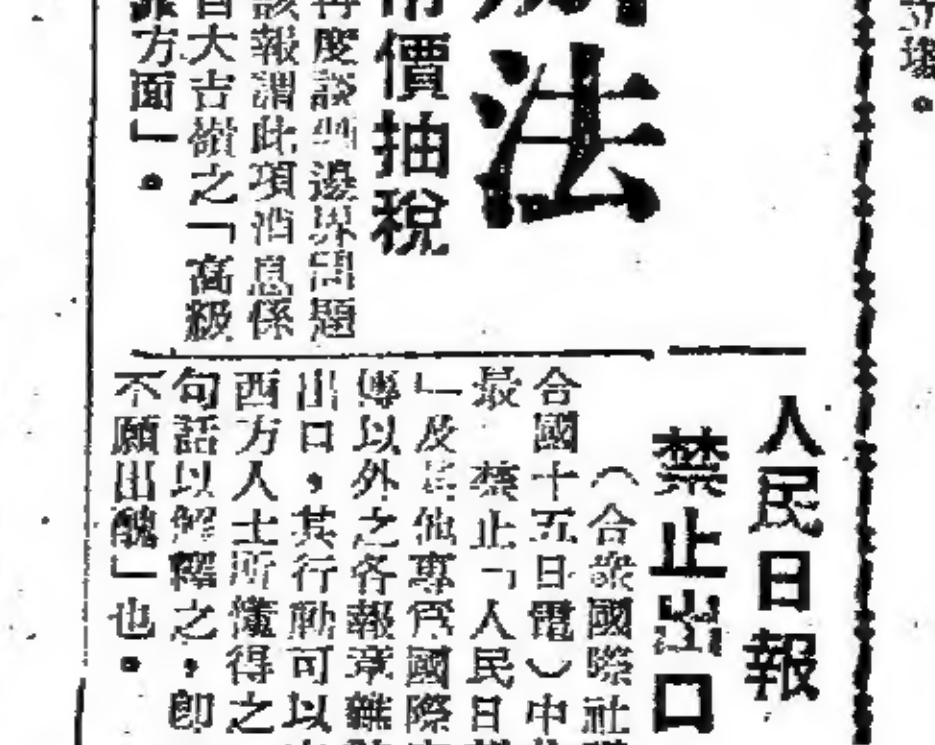 立場。
法
價抽稅
再度談到邊界問題
該報謂此項消息係
大吉嶺之「高級
方面」。
人民日報
禁止出口
（合眾國際社
合國十五日電）中
最 禁止「人民日
」及其他專為國際
傳以外之各報章雜
出口，其行動可以
西方人士所懂得之
句話以解釋之，卽
不願出醜」也。